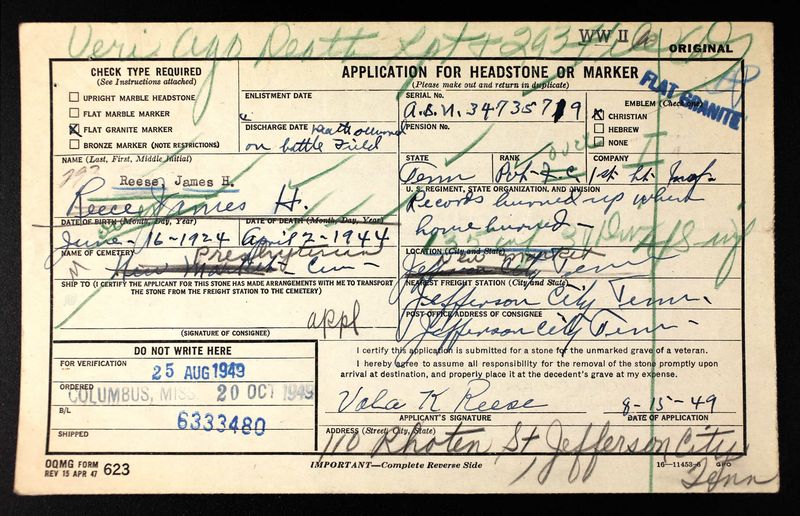 Veri Ago Death Rpt
WW II
ORIGINAL
CHECK TYPE REQUIRED
(See Instructions attached)
UPRIGHT MARBLE HEADSTONE
FLAT MARBLE MARKER
X FLAT GRANITE MARKER
BRONZE MARKER (NOTE RESTRICTIONS)
APPLICATION FOR HEADSTONE OR MARKER
(Please make out and return in duplicate)
ENLISTMENT DATE
SERIAL No.
A.S.N. 34735719
EMBLEM (Check one)
X CHRISTIAN
HEBREW
NONE
FLAT GRANITE
DISCHARGE DATE
Death occurred
on battle field
PENSION No.
NAME (Last, First, Middle Initial)
Reese, James H.
Reece, James H.
STATE
Tenn
RANK
Pvt
COMPANY
1st Lt. Inf.
U. S. REGIMENT, STATE ORGANIZATION, AND DIVISION
Records burned up when
home burned-
DATE OF BIRTH (Month, Day, Year)
June-16-1924
DATE OF DEATH (Month, Day, Year)
April 2-1944
NAME OF CEMETERY
Presbyterian
New Market Cem-
LOCATION (City and State)
New Market
Jefferson City Tenn
SHIP TO (I CERTIFY THE APPLICANT FOR THIS STONE HAS MADE ARRANGEMENTS WITH ME TO TRANSPORT
THE STONE FROM THE FREIGHT STATION TO THE CEMETERY)
NEAREST FREIGHT STATION (City and State)
Jefferson City Tenn-
POST OFFICE ADDRESS OF CONSIGNEE
Jefferson City Tenn-
appl
(SIGNATURE OF CONSIGNEE)
DO NOT WRITE HERE
FOR VERIFICATION
25 AUG 1949
ORDERED
COLUMBUS, MISS. 20 OCT 1949
B/L
6333480
SHIPPED
I certify this application is submitted for a stone for the unmarked grave of a veteran.
I hereby agree to assume all responsibility for the removal of the stone promptly upon
arrival at destination, and properly place it at the decedent's grave at my expense.
Vola K Reese
8-15-49
APPLICANT'S SIGNATURE
DATE OF APPLICATION
ADDRESS (Street, City, State)
110 Rhoten St, Jefferson City,
Tenn
OQMG FORM
REV 15 APR 47 623
IMPORTANT—Complete Reverse Side
16—11453-6 GPO